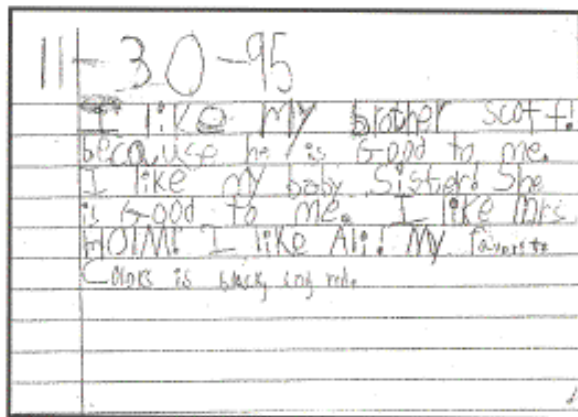 11-30-95
I like My brother Scott!
because he is Good to me.
I like my baby Sister! She
is Good to me. I like Mrs.
HOlM! I like Ali! My favorite
Colors is black and red.